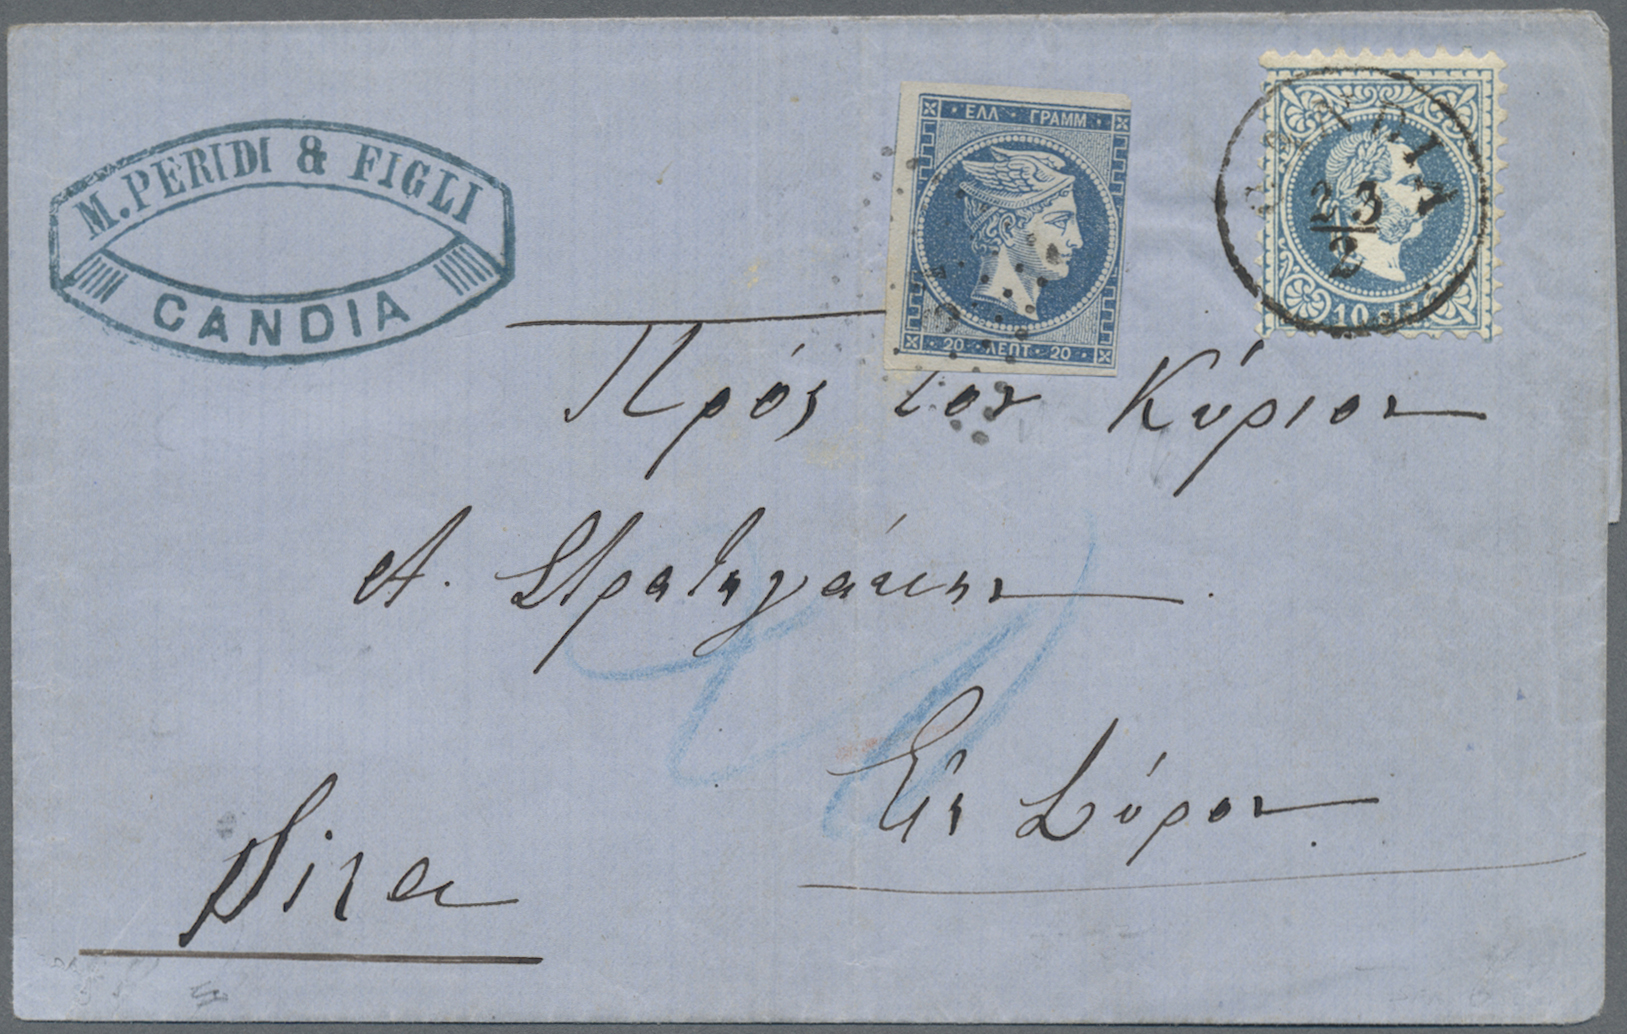 M. PERIDI & FIGLI
CANDIA
ΕΛΛ · ΓΡΑΜΜ
20 · ΛΕΠΤ · 20
CANDIA
23
2
10
Πρός τον Κύριον
Α. Στρατηγάκην
Εις Σύρον
Sira